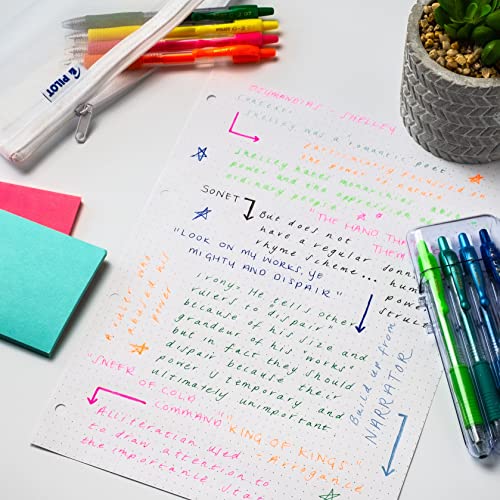 PILOT
OZYMANDIAS - SHELLEY
Context:
Shelley was a romantic poet
particularly interested in
the power of nature
Shelley hated monarchies, absolute
power and the oppression of
ordinary people
"THE HAND THA
THEM
SONNET
But does not
have a regular sonn
rhyme scheme... hum
power
struc
"LOOK ON MY WORKS, YE
MIGHTY AND DISPAIR"
Irony? He tells other
rulers to dispair"
because of his size and
grandeur of his 'works'
but in fact they should
dispair because their
power is temporary and
ultimately unimportant
A ruler who
abused his
power
Build up from
NARRATOR
"SNEER
OF COLD
COMMAND"
"KING OF KINGS."
Arrogance
Alliteration used
to draw attention to
the importance.